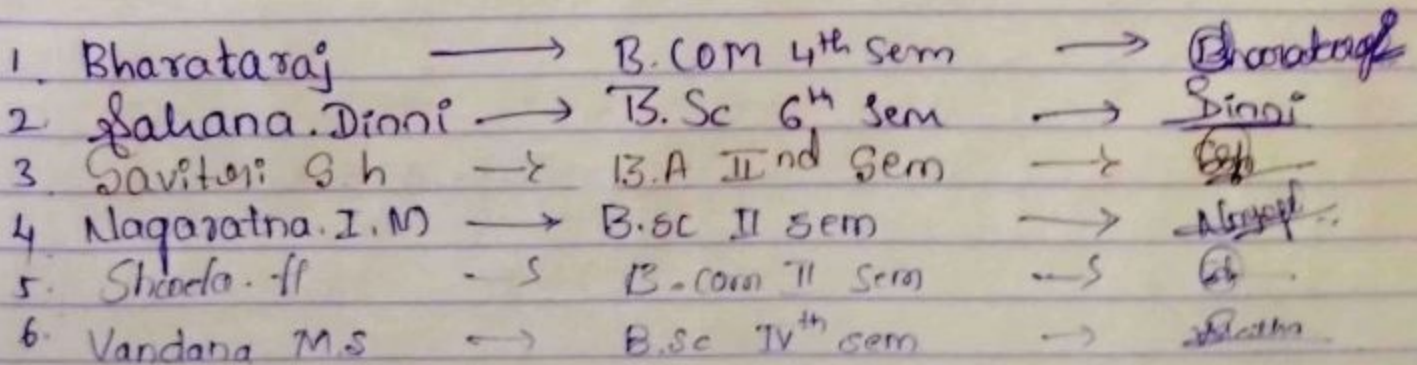 1. Bharataraj → B.COM 4th Sem → Bharataraj
2. Sahana.Dinni → B.Sc 6th Sem → Dinni
3. Savitri S h → B.A IInd Sem →
4 Nagaratna.I.M → B.sc II sem →
5. → B.com II Sem →
6. Vandana M.S → B.Sc IVth sem →